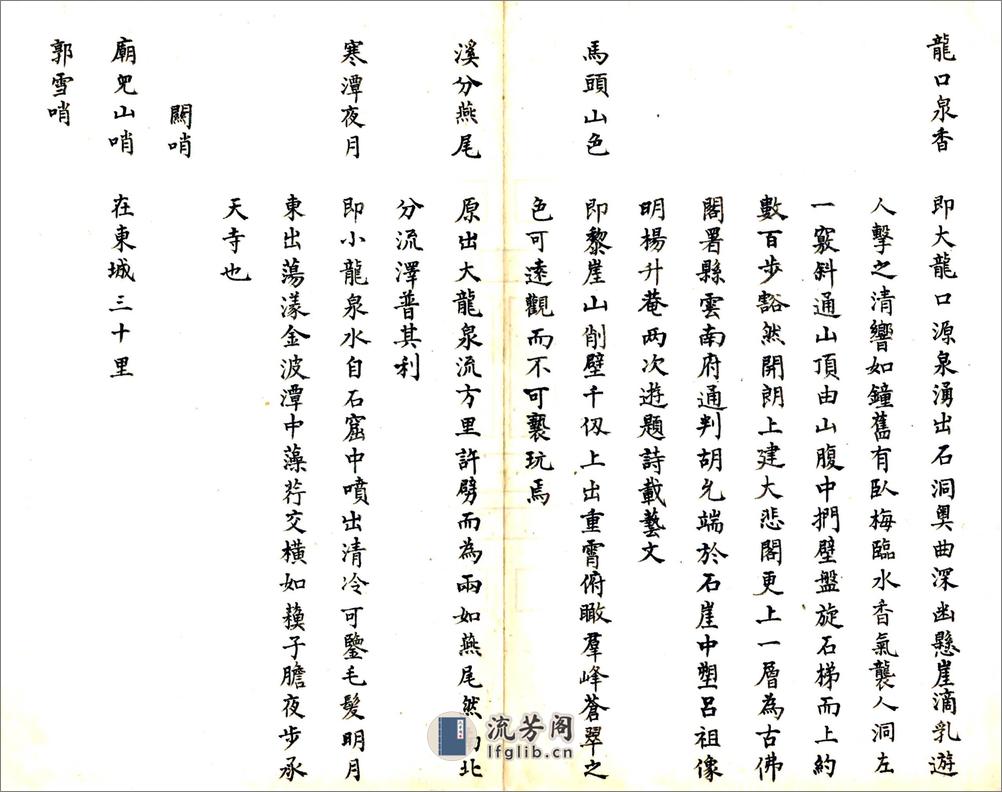 龍口泉香　即大龍口源泉湧出石洞奧曲深幽懸崖滴乳遊
人擊之清響如鐘舊有臥梅臨水香氣襲人洞左
一竅斜通山頂由山腹中捫壁盤旋石梯而上約
數百步豁然開朗上建大悲閣更上一層為古佛
閣署縣雲南府通判胡允端於石崖中塑呂祖像
明楊升菴两次遊題詩載藝文
馬頭山色　即黎崖山削壁千仭上出重霄俯瞰羣峰蒼翠之
色可遠觀而不可褻玩焉
溪分燕尾　原出大龍泉流方里許劈而為兩如燕尾然北
分流澤普其利
寒潭夜月　即小龍泉水自石窟中噴出清冷可鑒毛髮明月
東出蕩漾金波潭中藻荇交橫如蘓子瞻夜步承
天寺也
關哨
廟兒山哨　在東城三十里
郭雪哨
流芳阁
lfglib.cn